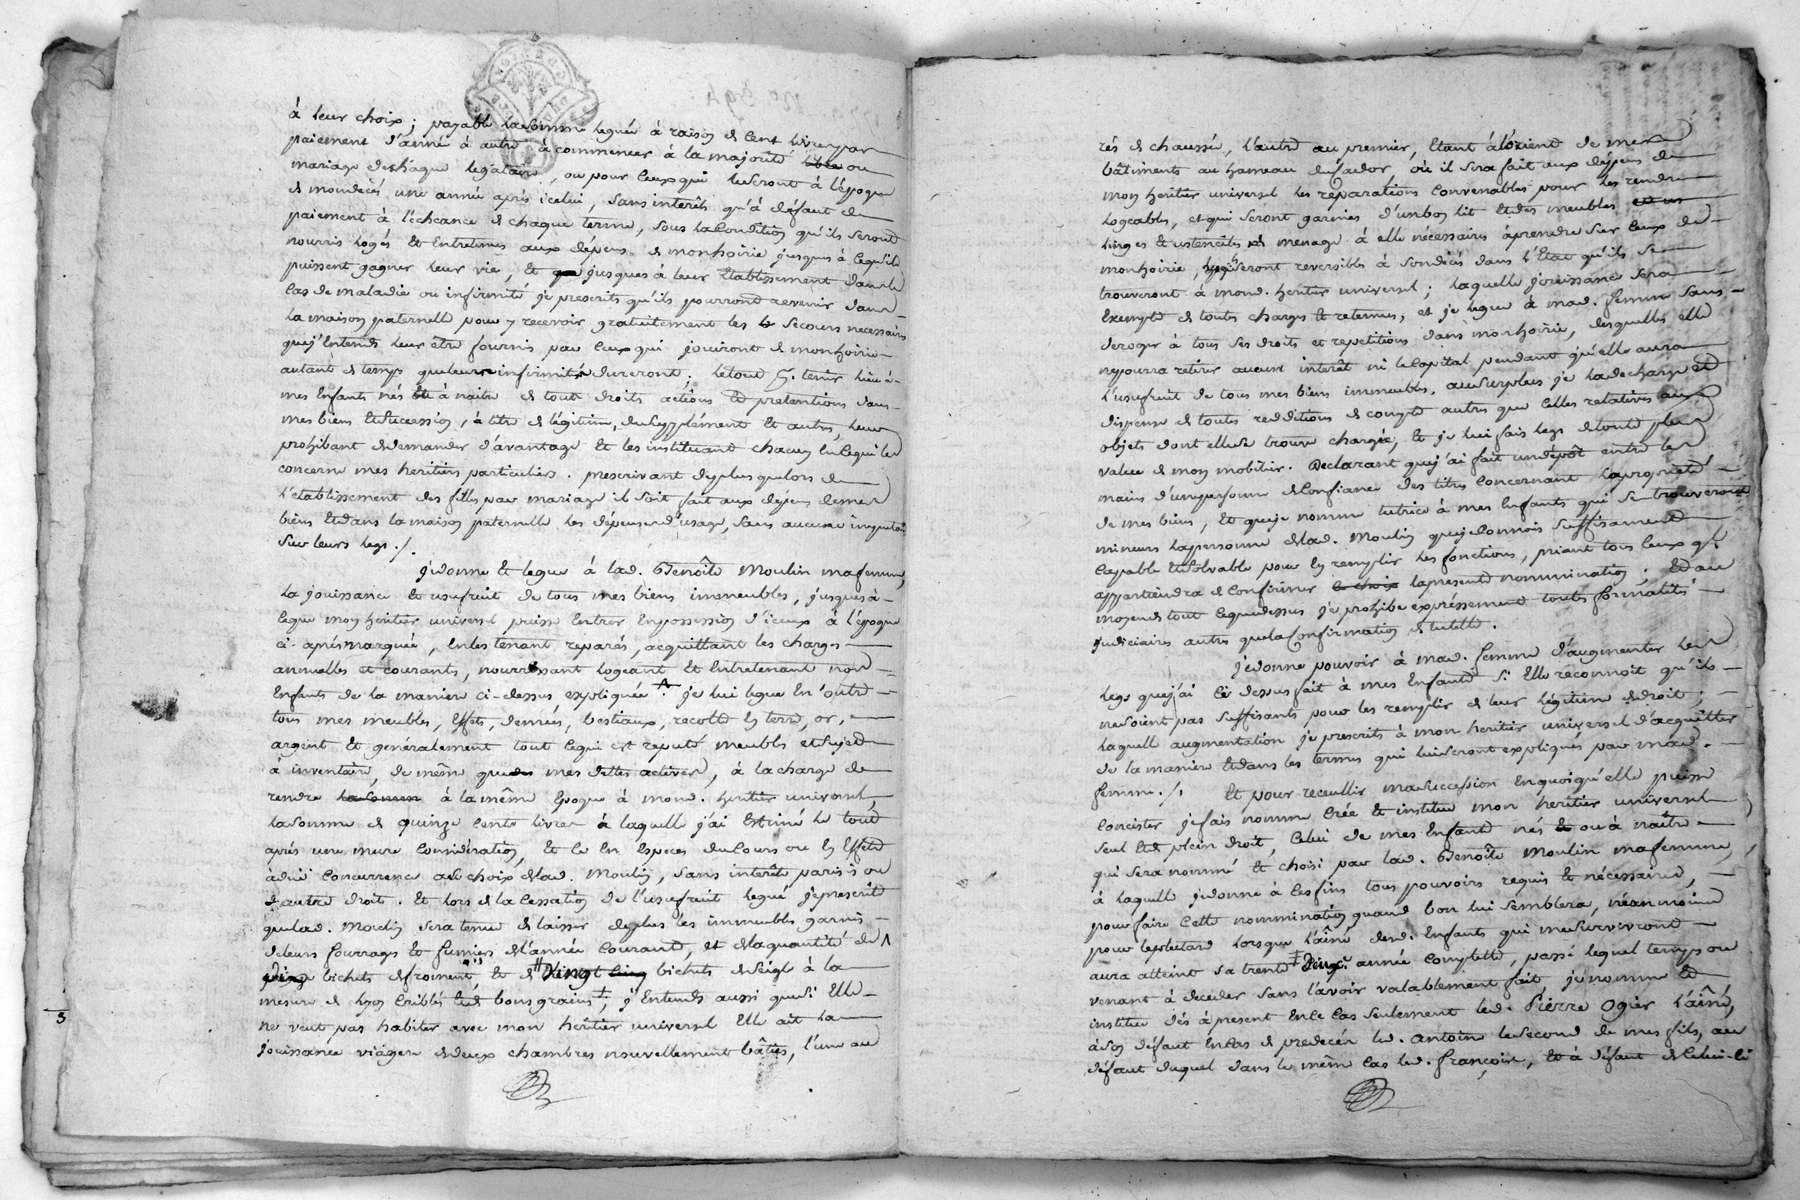 à leur choix; payable la somme leguée à raison de cent livres par
paiement d'année à autre à commencer à la majorité libre ou
mariage de chaque legataire, ou pour ceux qui le seront à l'époque
de mon décés une année après icelui, sans interêts qu'à défaut de
paiement à l'écheance de chaque terme, sous la condition qu'ils seront
nourris logés et entretenus aux dépens de mon hoirie jusques à ce qu'ils
puissent gagner leur vie, et jusques à leur Etablissement dans le
cas de maladie ou infirmité je prescrits qu'ils pourront revenir dans
la maison paternelle pour y recevoir gratuitement les secours necessaires
que j'entends leur être fournis par ceux qui jouiront de mon hoirie
autant de temps que leurs infirmités dureront; le tout p. tenir lieu à
mes Enfants nés et à naitre de tout droits actions et pretentions dans
mes biens et succession, à titre de légitime, de supplément et autres, leur
prohibant de demander d'avantage et les instituant chacun en ce qui les
concerne mes heritiers particuliers. prescrivant de plus que lors de
l'établissement des filles par mariage il soit fait aux dépens de mes
biens et dans la maison paternelle les dépenses d'usage, sans aucune imputation
sur leurs legs ./.
je donne et legue à lad. Benoîte Moulin ma femme,
la jouissance et usufruit de tous mes biens immeubles, jusques à
ce que mon heritier universel puisse entrer en possession d'iceux à l'époque
ci-après marquée, en les tenant reparés, acquittant les charges
annuelles et courants, nourrissant logeant et entretenant nos
Enfants de la maniere ci-dessus expliquée. je lui legue en outre
tous mes meubles, Effets, denrées, bestiaux, recolte en terre, or,
argent et generalement tout ce qui est reputé meubles et sujet
à inventaire, de même que mes dettes actives, à la charge de
rendre la somme à la même époque à mond. heritier universel,
la somme de quinze cents livres à laquelle j'ai Estimé le tout
après une mure considération, et ce en Especes du cours ou en Effets
à dûe concurrence au choix de lad. Moulin, sans interêts parisis ou
d'autre droit. Et lors de la cessation de l'usufruit legué je prescrit
que lad. Moulin sera tenue de laisser de plus les immeubles garnis
de leurs fourrages et fumiers de l'année courante, et de la quantité de
bichets de froment, et de vingt cinq bichets de seigle à la
mesure de Lyon criblés et bons grains; j'Entends aussi que si Elle
ne veut pas habiter avec mon heritier universel Elle ait la
jouissance viagere de deux chambres nouvellement bâties, l'une au
3
rés de chaussée, l'autre au premier, étant à l'orient de mes
bâtiments au hameau du fador, où il sera fait aux dépens de
mon heritier universel les reparations convenables pour les rendre
logeables, et qui seront garnies d'un bon lit et des meubles
linges et ustenciles de menage à elle nécessaires à prendre sur ceux de
mon hoirie, lesquels seront reversibles à son décés dans l'Etat qu'ils se
trouveront à mond. heritier universel; laquelle jouissance sera
Exempte de toutes charges et retenues, et je legue à mad. femme sans
deroger à tous ses droits et repetitions dans mon hoirie, desquelles elle
ne pourra retirer aucun interêt ni le capital pendant qu'elle aura
l'usufruit de tous mes biens immeubles. au surplus je la decharge et
dispense de toutes redditions de compte autres que celles relatives aux
objets dont elle se trouve chargée, et je lui fais legs de toute plus
value de mon mobilier. Declarant que j'ai fait un dépôt entre les
mains d'une personne de confiance des titres concernant la proprieté
de mes biens, et que je nomme tutrice à mes Enfants qui se trouveront
mineurs la personne de lad. Moulin que je connois suffisament
capable et solvable pour en remplir les fonctions, priant tous ceux qu'il
appartiendra de confirmer le choix la presente nommination; et au
moyen de tout ce que dessus je prohibe expréssement toutes formalités
judiciaires autres que la confirmation de tutelle.
je donne pouvoir à mad. femme d'augmenter les
legs que j'ai ci dessus fait à mes Enfants si Elle reconnoit qu'ils
ne soient pas suffisants pour les remplir de leur légitime de droit;
laquelle augmentation je prescrits à mon heritier universel d'acquitter
de la maniere et dans les termes qui lui seront expliqués par mad.
femme ./. Et pour receuillir ma succession en quoi qu'elle puisse
concister je fais nomme crée et institue mon heritier universel
seul et de plein droit, celui de mes Enfants nés et ou à naître
qui sera nommé et choisi par lad. Benoîte Moulin ma femme,
à laquelle je donne à ces fins tous pouvoirs requis et nécessaires,
pour faire cette nommination quand bon lui semblera, néanmoins
pour le plutard lorsque l'aîné desd. Enfants qui me survivront
aura atteint sa trente année complette, passé lequel temps ou
venant à deceder sans l'avoir valablement fait, je nomme et
institue dès à present en ce cas seulement led. Pierre Ogier l'aîné,
à son défaut en cas de predecés led. antoine le second de mes fils, au
défaut duquel dans le même cas led. françois, et à défaut de celui-ci